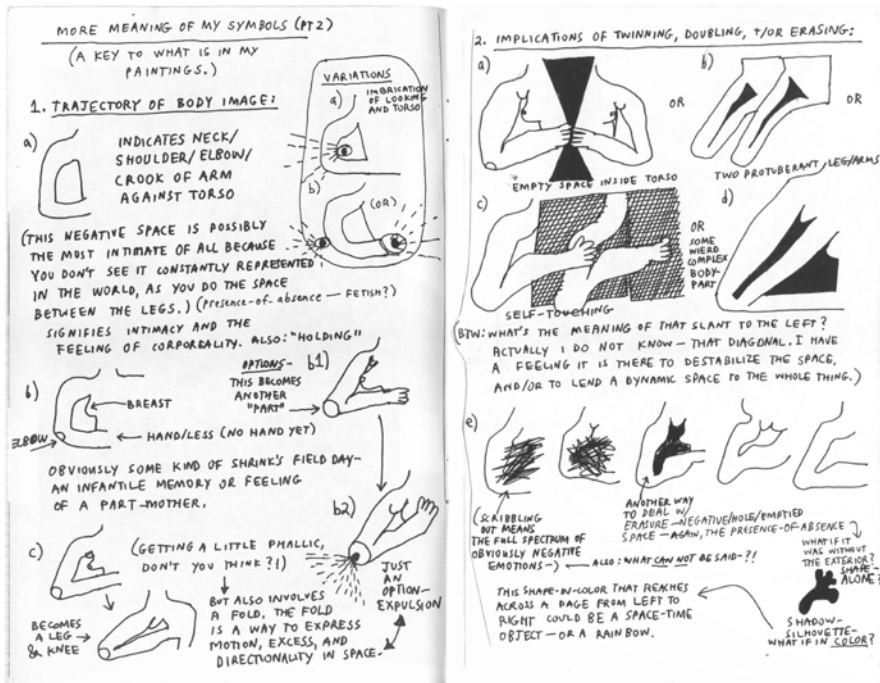 MORE MEANING OF MY SYMBOLS (PT 2)
(A KEY TO WHAT IS IN MY
PAINTINGS.)
1. TRAJECTORY OF BODY IMAGE:
a)
INDICATES NECK/
SHOULDER/ELBOW/
CROOK OF ARM
AGAINST TORSO
VARIATIONS
a)
IMBRICATION
OF LOOKING
AND TORSO
b)
(OR)
(THIS NEGATIVE SPACE IS POSSIBLY
THE MOST INTIMATE OF ALL BECAUSE
YOU DON'T SEE IT CONSTANTLY REPRESENTED
IN THE WORLD, AS YOU DO THE SPACE
BETWEEN THE LEGS.) (presence-of-absence — FETISH?)
SIGNIFIES INTIMACY AND THE
FEELING OF CORPOREALITY. ALSO: "HOLDING"
b)
BREAST
ELBOW
HAND/LESS (NO HAND YET)
OPTIONS-
THIS BECOMES
ANOTHER
"PART"
b1)
OBVIOUSLY SOME KIND OF SHRINK'S FIELD DAY-
AN INFANTILE MEMORY OR FEELING
OF A PART-MOTHER.
b2)
JUST
AN
OPTION-
EXPULSION
c)
(GETTING A LITTLE PHALLIC,
DON'T YOU THINK?!)
BECOMES
A LEG
& KNEE
BUT ALSO INVOLVES
A FOLD. THE FOLD
IS A WAY TO EXPRESS
MOTION, EXCESS, AND
DIRECTIONALITY IN SPACE.
2. IMPLICATIONS OF TWINNING, DOUBLING, +/OR ERASING:
a)
OR
b)
OR
EMPTY SPACE INSIDE TORSO
TWO PROTUBERANT LEG/ARMS
c)
OR
SOME
WIERD
COMPLEX
BODY-
PART
d)
SELF-TOUCHING
BTW: WHAT'S THE MEANING OF THAT SLANT TO THE LEFT?
ACTUALLY I DO NOT KNOW — THAT DIAGONAL. I HAVE
A FEELING IT IS THERE TO DESTABILIZE THE SPACE,
AND/OR TO LEND A DYNAMIC SPACE TO THE WHOLE THING.)
e)
(SCRIBBLING
OUT MEANS
THE FULL SPECTRUM OF
OBVIOUSLY NEGATIVE
EMOTIONS-)
ALSO: WHAT CAN NOT BE SAID-?!
ANOTHER WAY
TO DEAL W/
ERASURE — NEGATIVE/HOLE/EMPTIED
SPACE — AGAIN, THE PRESENCE-OF-ABSENCE
WHAT IF IT
WAS WITHOUT
THE EXTERIOR?
SHAPE-
ALONE?
THIS SHAPE-IN-COLOR THAT REACHES
ACROSS A PAGE FROM LEFT TO
RIGHT COULD BE A SPACE-TIME
OBJECT — OR A RAINBOW.
SHADOW-
SILHOUETTE-
WHAT IF IN COLOR?